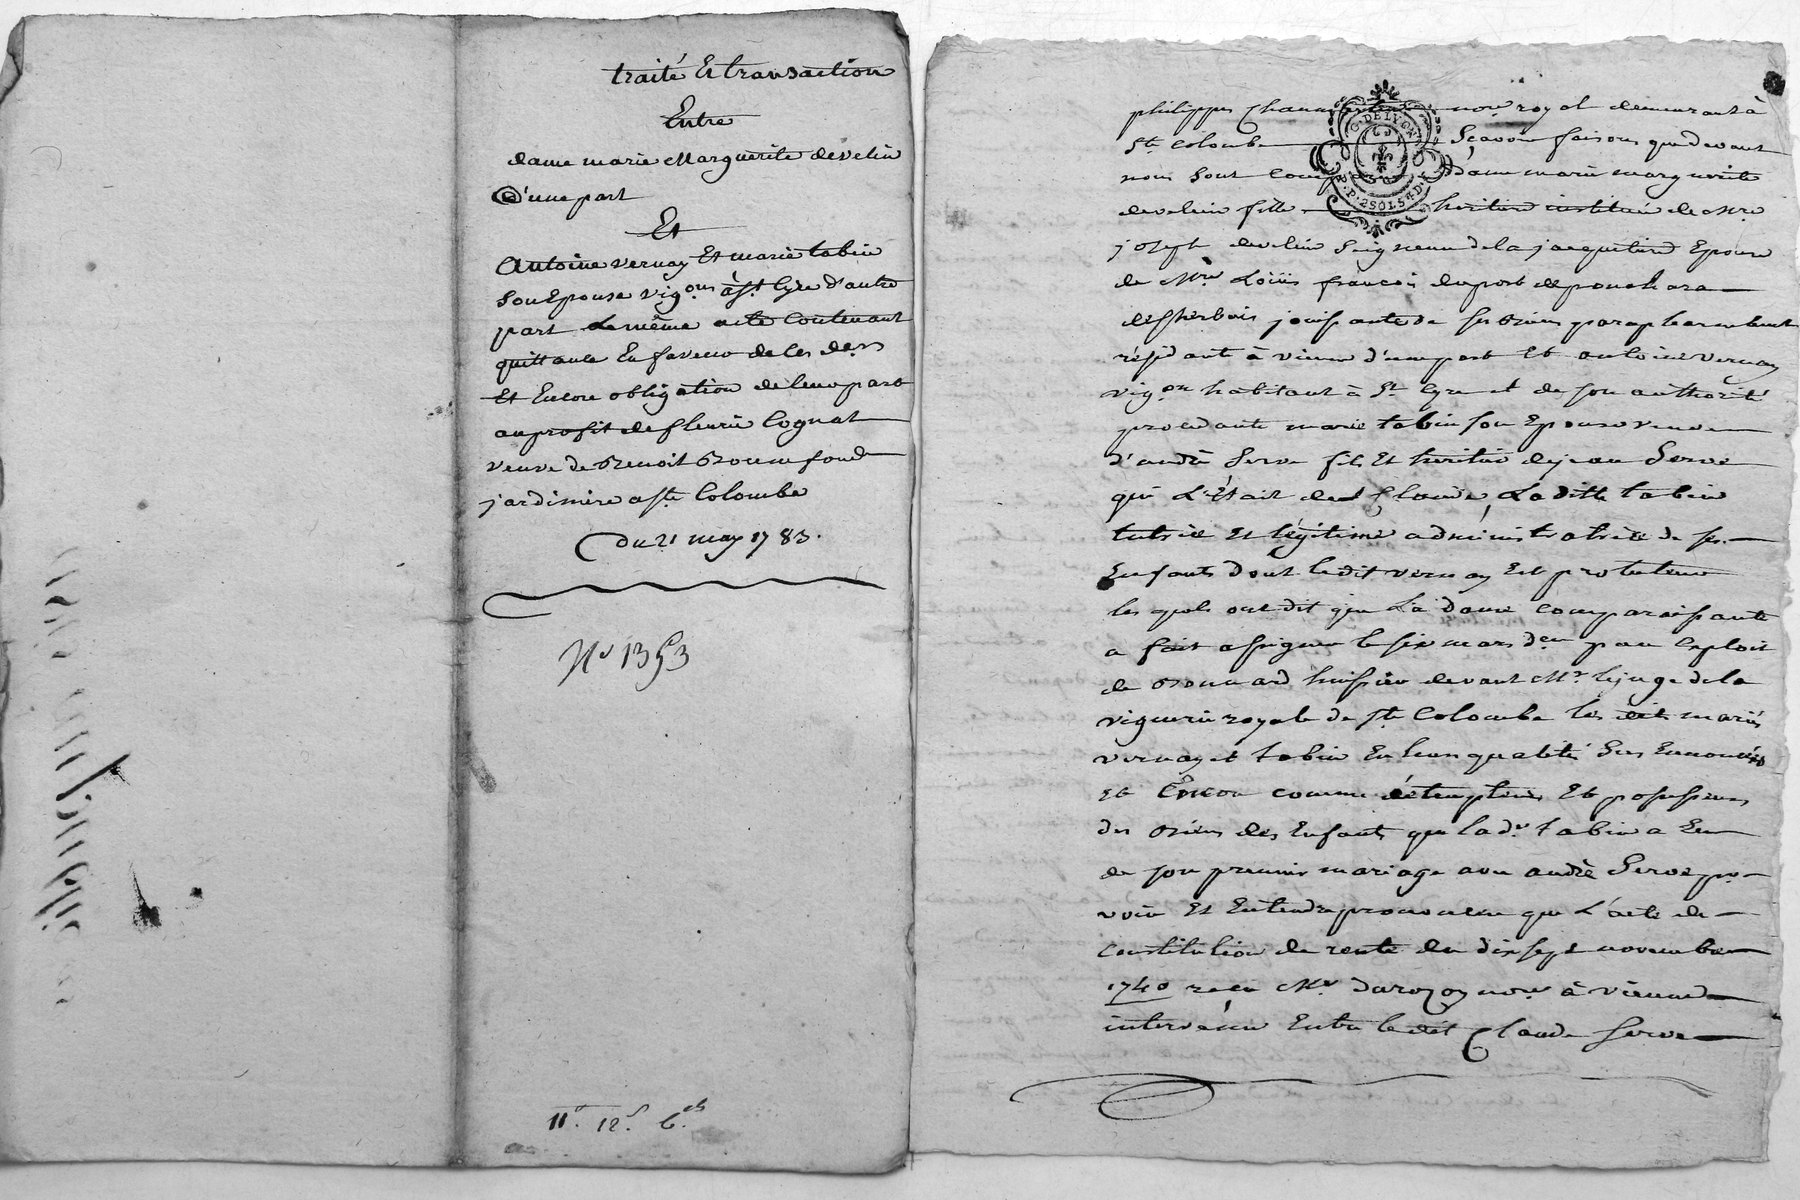 traité Et transaction
Entre
dame marie Marguerite develin
d'une part
Et
Antoine vernay Et marie tabin
Son Epouse vigons à st Cyre d'autre
part Le même acte Contenant
quittance En faveur de les ders
Et Encore obligation de leur part
au profit de fleurie Cognat
veuve de Benoit Bonnefond
jardinière a ste Colombe
Du 21 may 1783.
No 1353
11. 12s. 6ds
philippes Chaum nore royal demeurant à
Ste Colombe Sçavoir faisons que devant
nous Sont Comp dame marie marguerite
develin fille heritiere instituée de Mre
joseph develin Seigneur de la jacquetiere Epouse
de Mre Loüis françois duport de ponchara
jouissante de ses Biens paraphernaux
résidante à vienne d'une part Et antoine vernay
vigon habitant à St Cyre et de son authorité
procedante marie tabin son Epouse veuve
d'andré Serve fils Et heritier de jean Serve
qui L'était de Claude, La ditte tabin
tutrice et légitime administratrice de ses
Enfants dont le dit vernay Est protuteur
les quels ont dit que La dame comparaissante
a fait assigner le six mars der par Exploit
de Bonnard huissier devant Mr le juge de la
viguerie royale de ste Colombe les dits mariés
vernay et tabin En leurs qualités Sus Ennoncées
et Encor comme détempteurs Et possesseurs
des Biens des Enfants que lade tabin a Eu
de son premier mariage avec andré Serve pr
voir Et Entendre prononcer que L'acte de
Constitution de rente du dix sept novembre
1740 reçu Mr durozoy nore à vienne
intervenu Entre le dit Claude Serve
G. DE LYON